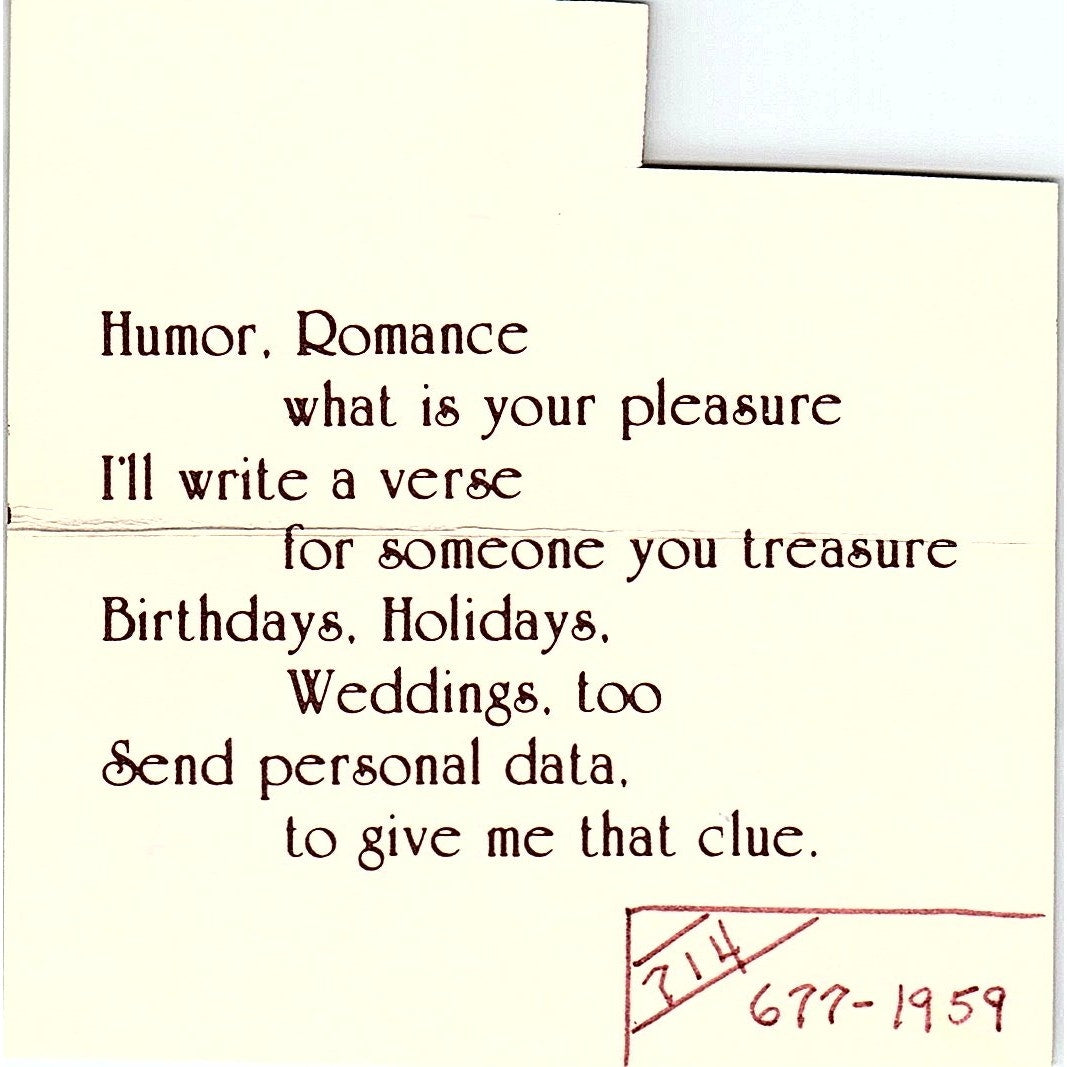 Humor, Romance
what is your pleasure
I'll write a verse
for someone you treasure
Birthdays, Holidays,
Weddings, too
Send personal data,
to give me that clue.
314
677-1959